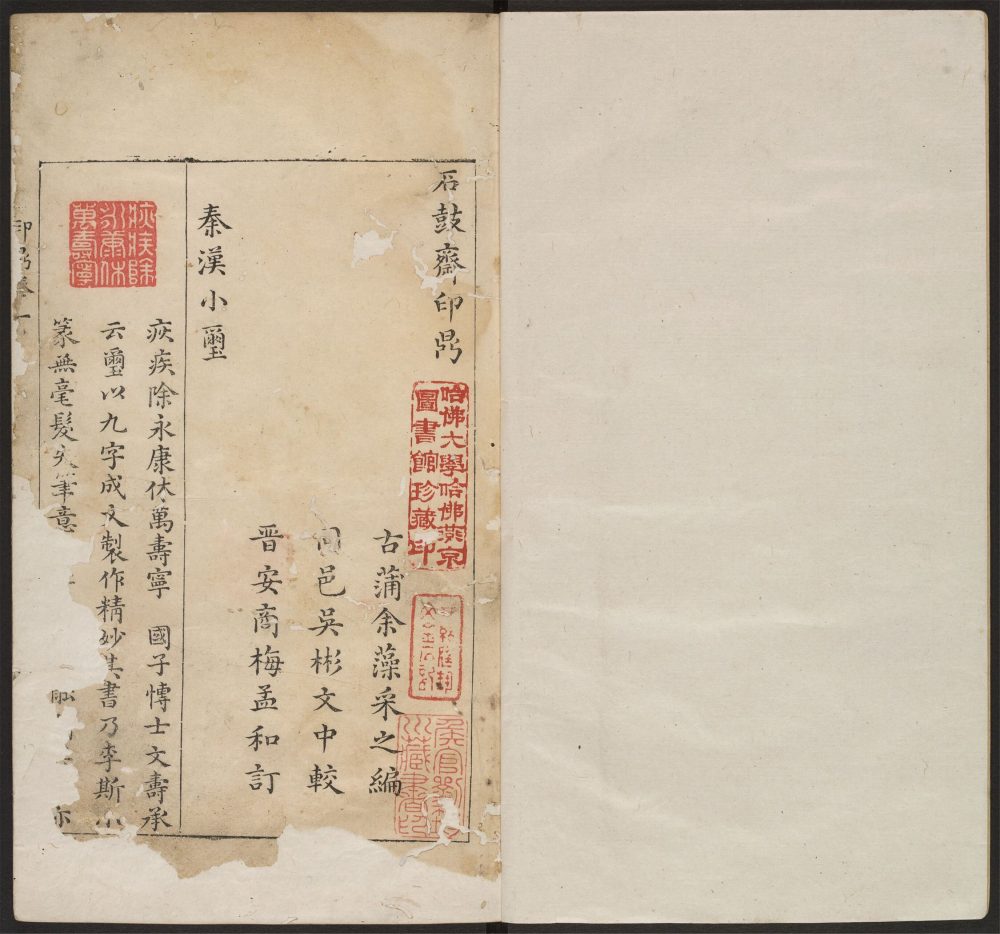 石鼓齋印鼎
哈佛大學哈佛燕京
圖書館珍藏印
古蒲余藻采之編
同邑吳彬文中較
晉安商梅孟和訂
秦漢小璽
疢疾除
永康休
萬壽寧
疢疾除永康休萬壽寧　國子博士文壽承
云璽以九字成文製作精妙其書乃李斯小
篆無毫髮失筆意
印鼎卷一